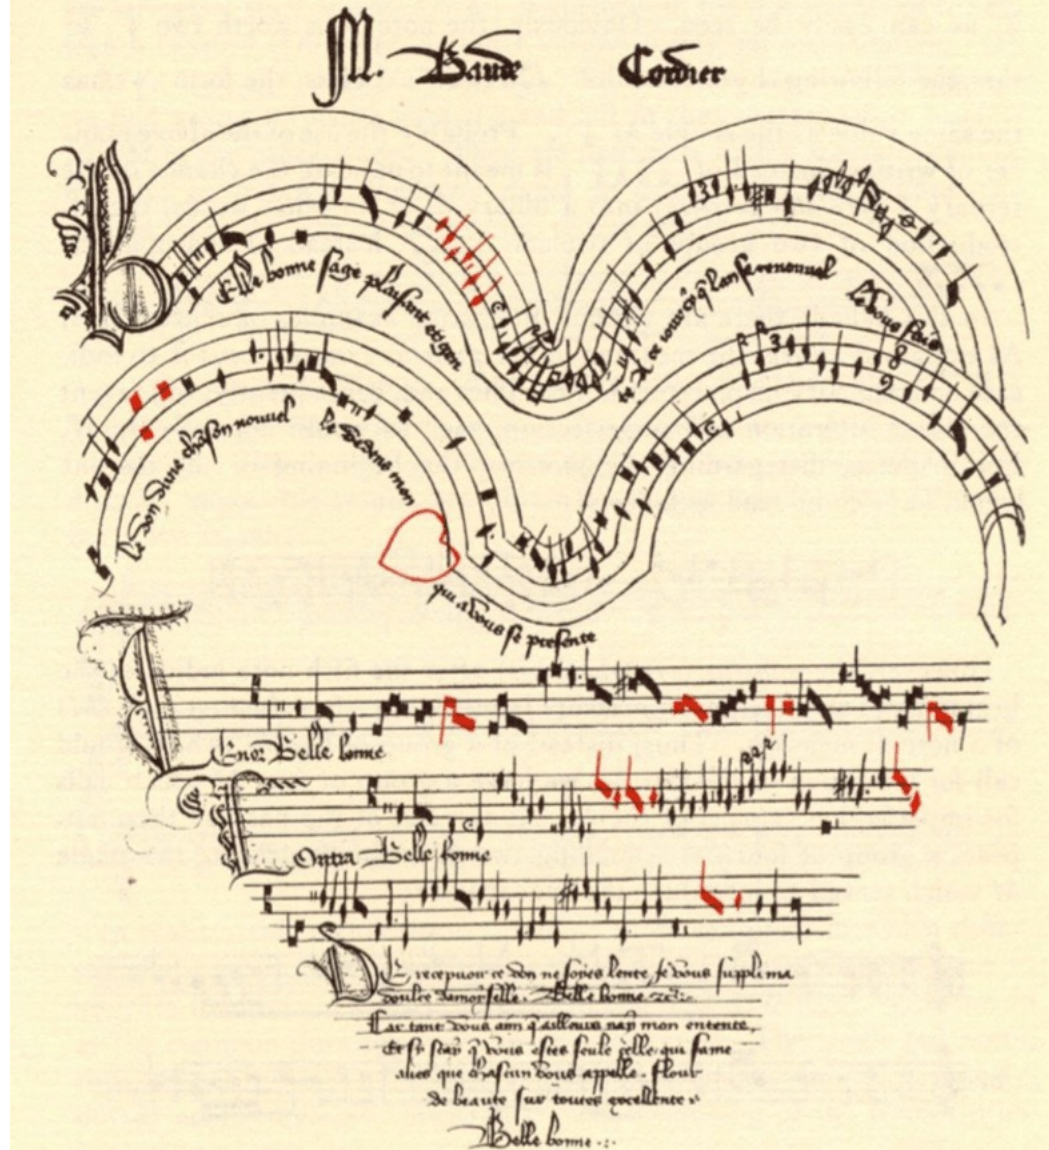 M. Baude Cordier
BElle bonne sage plaisant et gen
te A ce jour cy q lan se renouvel
le Vous fais
le don dune chãson nouvel le Dedens mon
qui a vous se presente
TEnor Belle bonne
COntra Belle bonne
DE recepuoir ce don ne soyes lente, Je vous suppli ma
doulce damoyselle. Belle bonne
Car tant vous aim q'aillours nay mon entente,
Et sy scay q vous estes seule celle qui fame
aves que chascun vous appelle. Flour
de beaute sur toutes excellente
Belle bonne